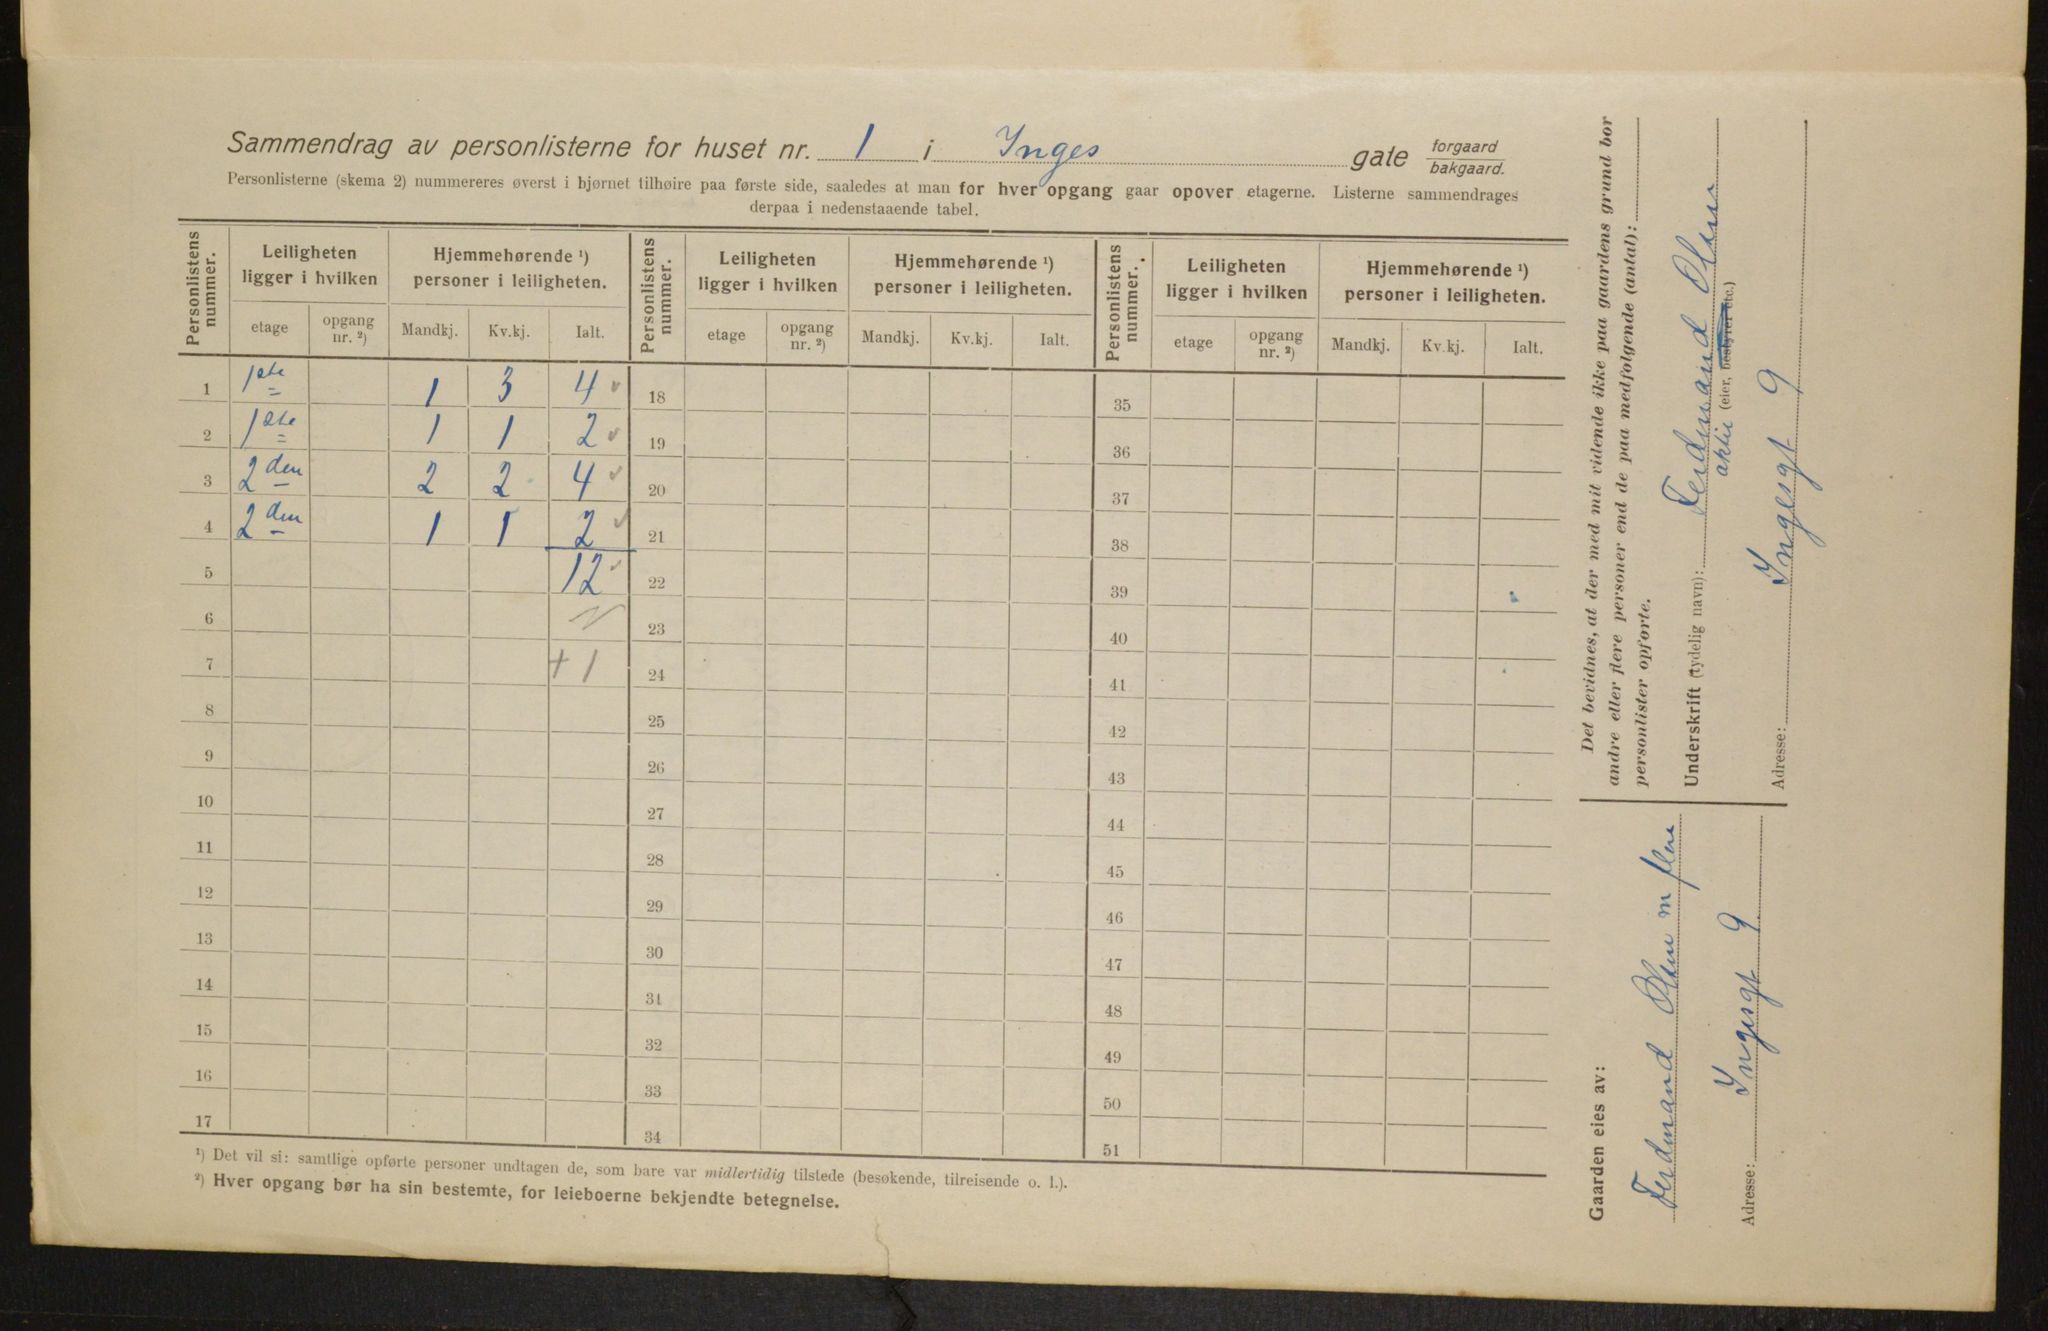 Sammendrag av personlisterne for huset nr. 1 i Inges gate forgaard bakgaard.
Personlisterne (skema 2) nummereres øverst i hjørnet tilhøire paa første side, saaledes at man for hver opgang gaar opover etagerne. Listerne sammendrages
derpaa i nedenstaaende tabel.
Personlistens nummer. Leiligheten ligger i hvilken Hjemmehørende ¹) personer i leiligheten. Personlistens nummer. Leiligheten ligger i hvilken Hjemmehørende ¹) personer i leiligheten. Personlistens nummer. Leiligheten ligger i hvilken Hjemmehørende ¹) personer i leiligheten.
etage opgang nr. ²) Mandkj. Kv.kj. Ialt. etage opgang nr. ²) Mandkj. Kv.kj. Ialt. etage opgang nr. ²) Mandkj. Kv.kj. Ialt.
1 1ste 1 3 4 18 35
2 1ste 1 1 2 19 36
3 2den 2 2 4 20 37
4 2den 1 1 2 21 38
5 12 22 39
6 23 40
7 +1 24 41
8 25 42
9 26 43
10 27 44
11 28 45
12 29 46
13 30 47
14 31 48
15 32 49
16 33 50
17 34 51
¹) Det vil si: samtlige opførte personer undtagen de, som bare var midlertidig tilstede (besøkende, tilreisende o. l.).
²) Hver opgang bør ha sin bestemte, for leieboerne bekjendte betegnelse.
Det bevidnes, at der med mit vidende ikke paa gaardens grund bor
andre eller flere personer end de paa medfølgende (antal):
personlister opførte.
Underskrift (tydelig navn): Ferdinand Olsen
(eier, bestyrer etc.)
Adresse: Ingesgt 9
Gaarden eies av:
Ferdinand Olsen m flere
Adresse: Ingesgt 9